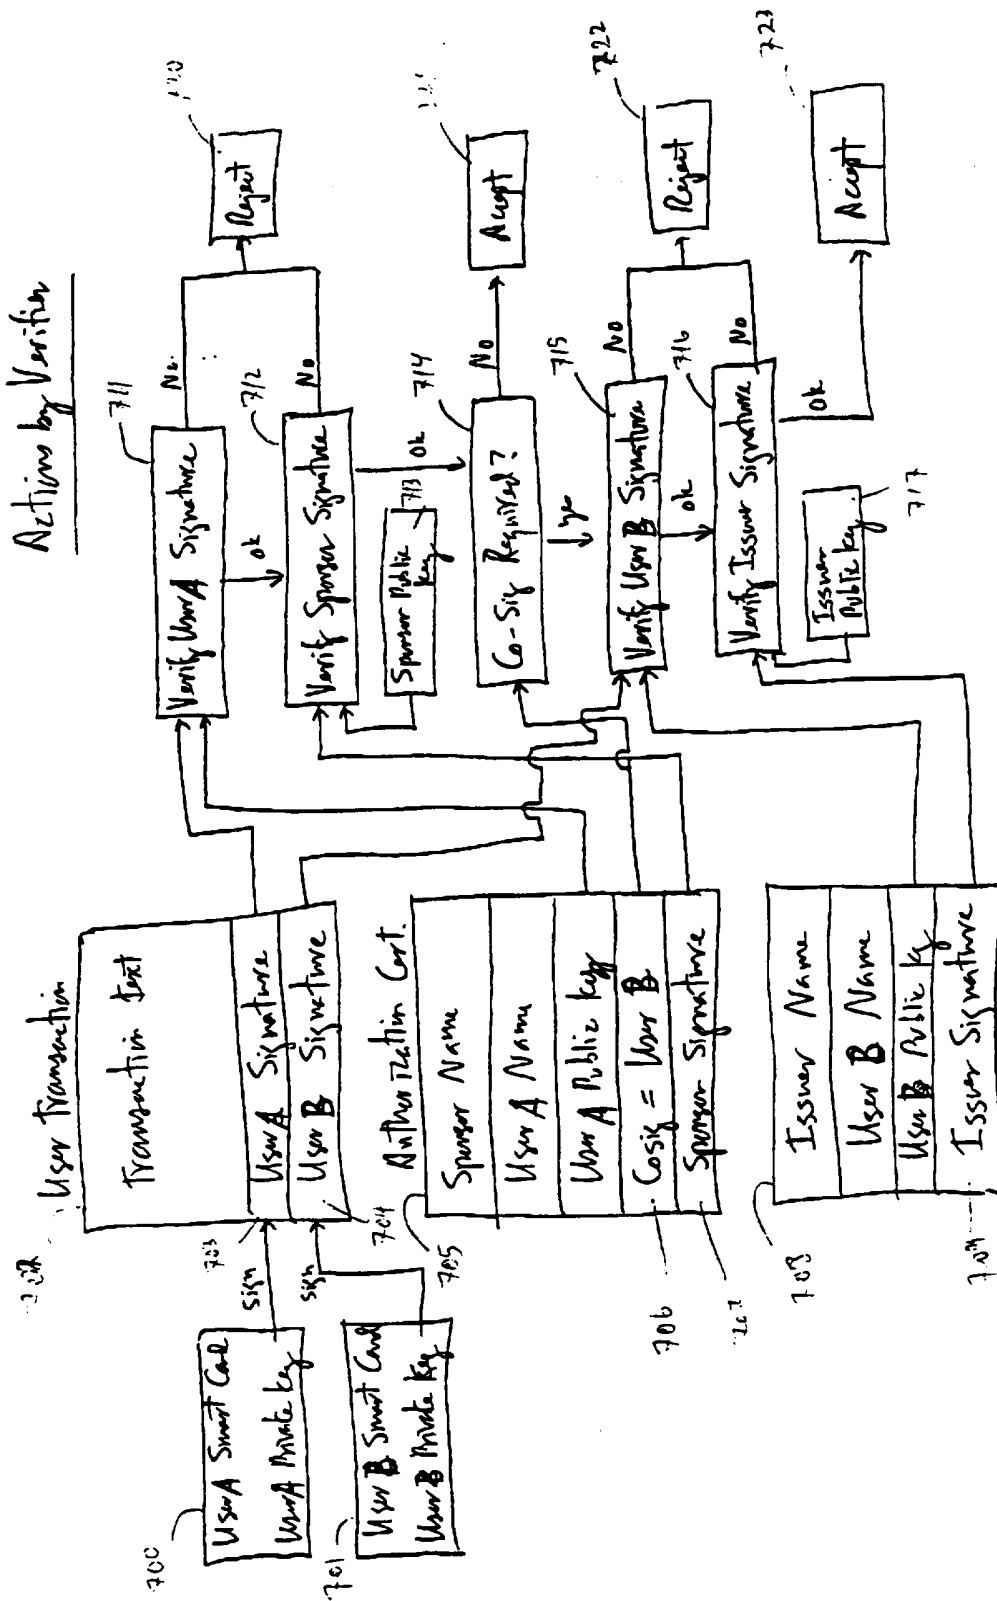 Actions by Verifier
700
User A Smart Card
User A Private Key
701
User B Smart Card
User B Private Key
sign
sign
User Transaction
Transaction Text
User A Signature
User B Signature
703
704
705
Authorization Cert.
Sponsor Name
User A Name
User A Public Key
Cosig = User B
Sponsor Signature
706
708
Issuer Name
User B Name
User B Public Key
Issuer Signature
711
Verify User A Signature
No
ok
712
Verify Sponsor Signature
No
ok
Sponsor Public
Key
713
714
Co-Sig Required?
No
yes
715
Verify User B Signature
No
ok
716
Verify Issuer Signature
No
ok
Issuer
Public Key
717
Reject
Accept
722
Reject
723
Accept